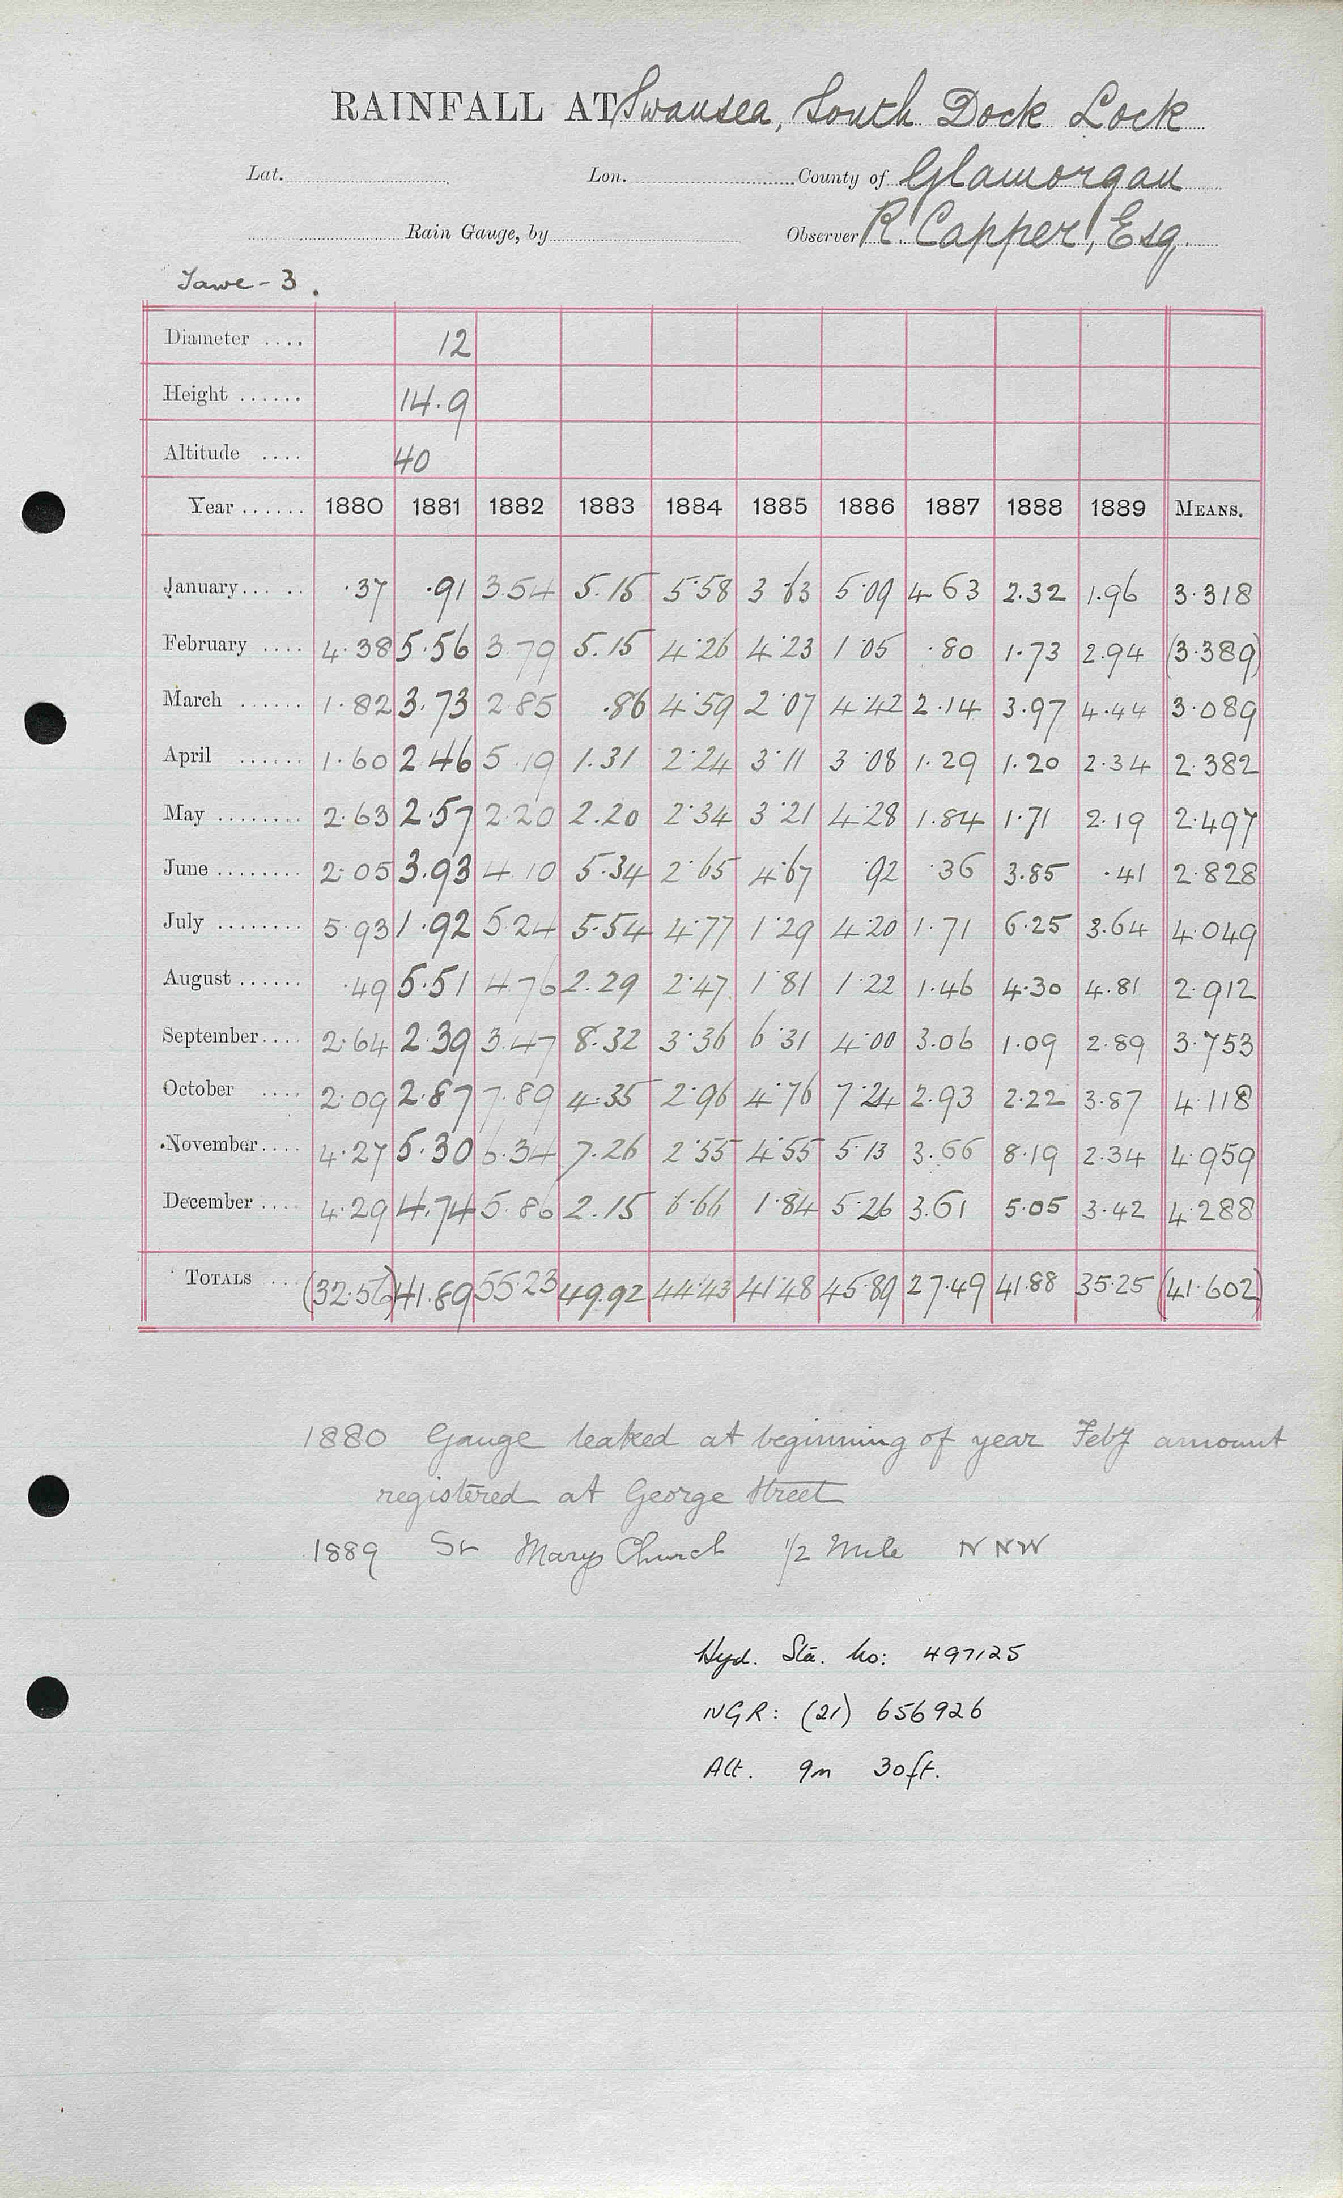 RAINFALL AT Swansea, South Dock Lock
Lat. Lon. County of Glamorgan
Rain Gauge, by Observer R. Capper, Esq.
Tawe - 3.
Diameter .... 12
Height ...... 14.9
Altitude .... 40
Year ...... 1880 1881 1882 1883 1884 1885 1886 1887 1888 1889 MEANS.
January ... .. .37 .91 3.54 5.15 5.58 3.63 5.09 4.63 2.32 1.96 3.318
February .... 4.38 5.56 3.79 5.15 4.26 4.23 1.05 .80 1.73 2.94 (3.389)
March ...... 1.82 3.73 2.85 .86 4.59 2.07 4.42 2.14 3.97 4.44 3.089
April ...... 1.60 2.46 5.19 1.31 2.24 3.11 3.08 1.29 1.20 2.34 2.382
May ........ 2.63 2.57 2.20 2.20 2.34 3.21 4.28 1.84 1.71 2.19 2.497
June ........ 2.05 3.93 4.10 5.34 2.65 4.67 .92 .36 3.85 .41 2.828
July ........ 5.93 1.92 5.24 5.54 4.77 1.29 4.20 1.71 6.25 3.64 4.049
August ...... .49 5.51 4.76 2.29 2.47 1.81 1.22 1.46 4.30 4.81 2.912
September .... 2.64 2.39 3.47 8.32 3.36 6.31 4.00 3.06 1.09 2.89 3.753
October .... 2.09 2.87 7.89 4.35 2.96 4.76 7.24 2.93 2.22 3.87 4.118
November .... 4.27 5.30 6.34 7.26 2.55 4.55 5.13 3.66 8.19 2.34 4.959
December .... 4.29 4.74 5.86 2.15 6.66 1.84 5.26 3.61 5.05 3.42 4.288
TOTALS ... (32.56) 41.89 55.23 49.92 44.43 41.48 45.89 27.49 41.88 35.25 (41.602)
1880 Gauge leaked at beginning of year Feby amount
registered at George Street
1889 St Marys Church 1/2 Mile NNW
Hyd. Sta. No: 497125
NGR: (21) 656926
Alt. 9m 30ft.